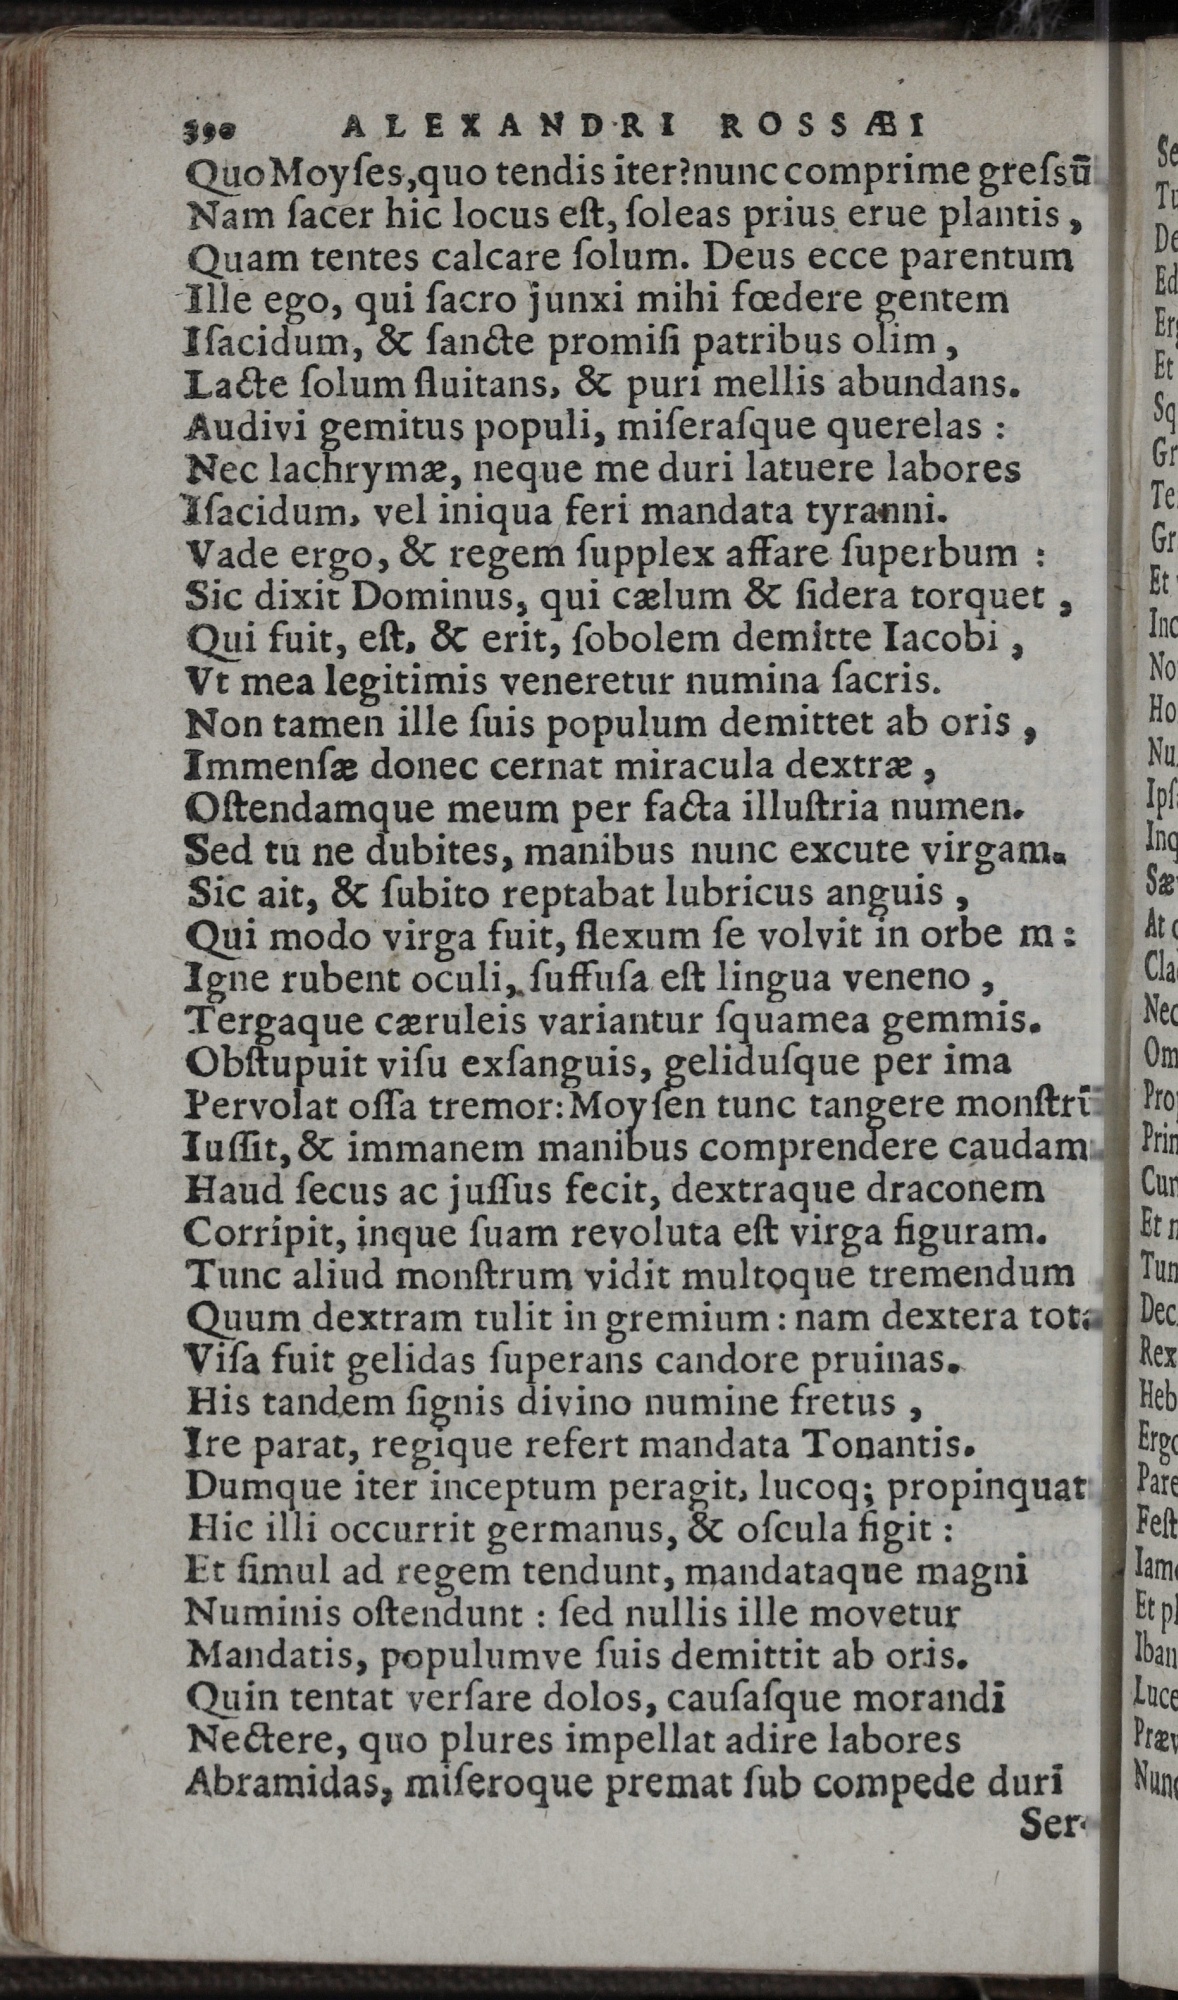 390 ALEXANDRI ROSSÆI
Quo Moyſes, quo tendis iter? nunc comprime greſsū
Nam ſacer hic locus eſt, ſoleas prius erue plantis,
Quam tentes calcare ſolum. Deus ecce parentum
Ille ego, qui ſacro junxi mihi fœdere gentem
Iſacidum, & ſancte promiſi patribus olim,
Lacte ſolum fluitans, & puri mellis abundans.
Audivi gemitus populi, miſeraſque querelas:
Nec lachrymæ, neque me duri latuere labores
Iſacidum, vel iniqua feri mandata tyranni.
Vade ergo, & regem ſupplex affare ſuperbum:
Sic dixit Dominus, qui cælum & ſidera torquet,
Qui fuit, eſt, & erit, ſobolem demitte Iacobi,
Vt mea legitimis veneretur numina ſacris.
Non tamen ille ſuis populum demittet ab oris,
Immenſæ donec cernat miracula dextræ,
Oſtendamque meum per facta illuſtria numen.
Sed tu ne dubites, manibus nunc excute virgam.
Sic ait, & ſubito reptabat lubricus anguis,
Qui modo virga fuit, flexum ſe volvit in orbe m:
Igne rubent oculi, ſuffuſa eſt lingua veneno,
Tergaque cæruleis variantur ſquamea gemmis.
Obſtupuit viſu exſanguis, geliduſque per ima
Pervolat oſſa tremor: Moyſen tunc tangere monſtrū
Iuſſit, & immanem manibus comprendere caudam.
Haud ſecus ac juſſus fecit, dextraque draconem
Corripit, inque ſuam revoluta eſt virga figuram.
Tunc aliud monſtrum vidit multoque tremendum
Quum dextram tulit in gremium: nam dextera tota
Viſa fuit gelidas ſuperans candore pruinas.
His tandem ſignis divino numine fretus,
Ire parat, regique refert mandata Tonantis.
Dumque iter inceptum peragit, lucoq; propinquat
Hic illi occurrit germanus, & oſcula figit:
Et ſimul ad regem tendunt, mandataque magni
Numinis oſtendunt: ſed nullis ille movetur
Mandatis, populumve ſuis demittit ab oris.
Quin tentat verſare dolos, cauſaſque morandi
Nectere, quo plures impellat adire labores
Abramidas, miſeroque premat ſub compede duri
Ser-